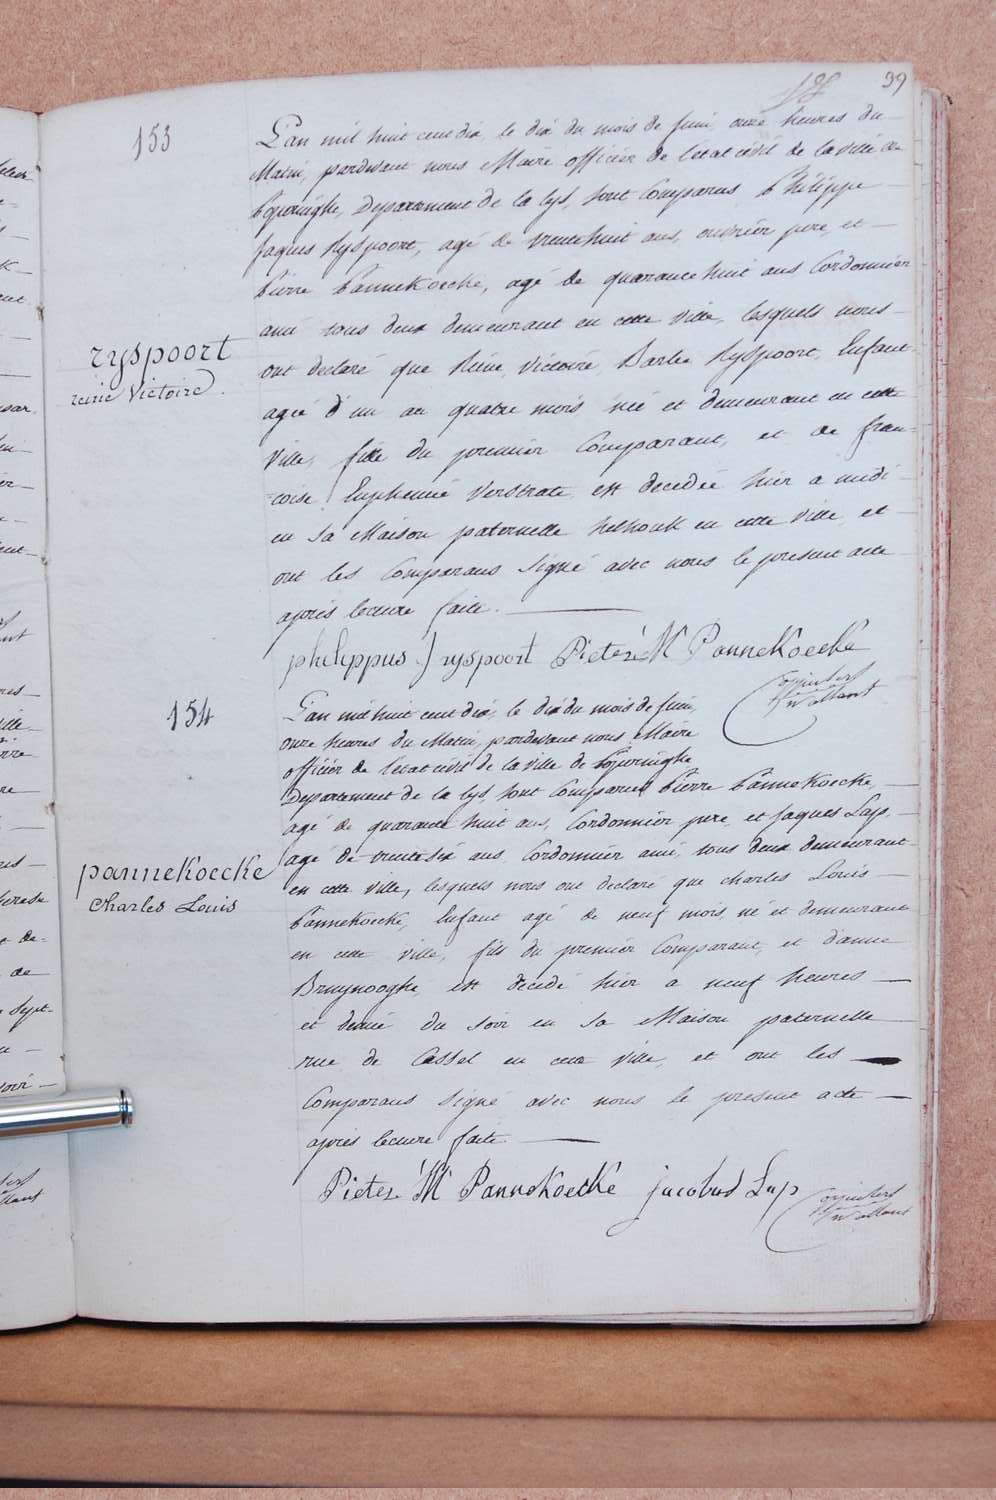 39
153
L'an mil huit cent dix, le dix du mois de juin, onze heures du
Matin, pardevant nous Maire officier de l'état civil de la ville de
Poperinghe, Departement de la Lys, sont Comparus Philippe
Jaques Ryspoort, agé de trentehuit ans, ouvrier pere, et
Pierre Pannekoecke, agé de quarante huit ans Cordonnier
ami tous deux demeurant en cette ville, lesquels nous
ont declaré que Reine, Victoire, Barbe Ryspoort, Enfant,
ryspoort
reine Victoire.
agée d'un an quatre mois née et demeurant en cette
ville, fille du premier Comparant, et de fran-
=coise Euphemie Verstrate, est decedée hier a midi
en sa Maison paternelle en cette ville et
ont les Comparans signé avec nous le present acte
après lecture faite.
philippus J ryspoort Pieter M Pannekoecke
154
L'an mil huit cent dix, le dix du mois de juin,
onze heures du Matin, pardevant nous Maire
officier de l'état civil de la ville de Poperinghe
Departement de la Lys, sont Comparus Pierre Pannekoecke,
agé de quarante huit ans, Cordonnier pere, et Jaques Lap,
agé de trentesix ans Cordonnier ami, tous deux demeurant
pannekoecke
charles Louis
en cette ville, lesquels nous ont declaré que charles Louis
Pannekoecke, Enfant agé de neuf mois, né et demeurant
en cette ville, fils du premier Comparant, et d'anne
Bruynooghe, est decedé hier a neuf heures
et demie du soir en sa Maison paternelle
rue de Cassel en cette ville, et ont les
Comparans signé avec nous le present acte
après lecture faite.
Pieter M Pannekoecke jacobus Lap